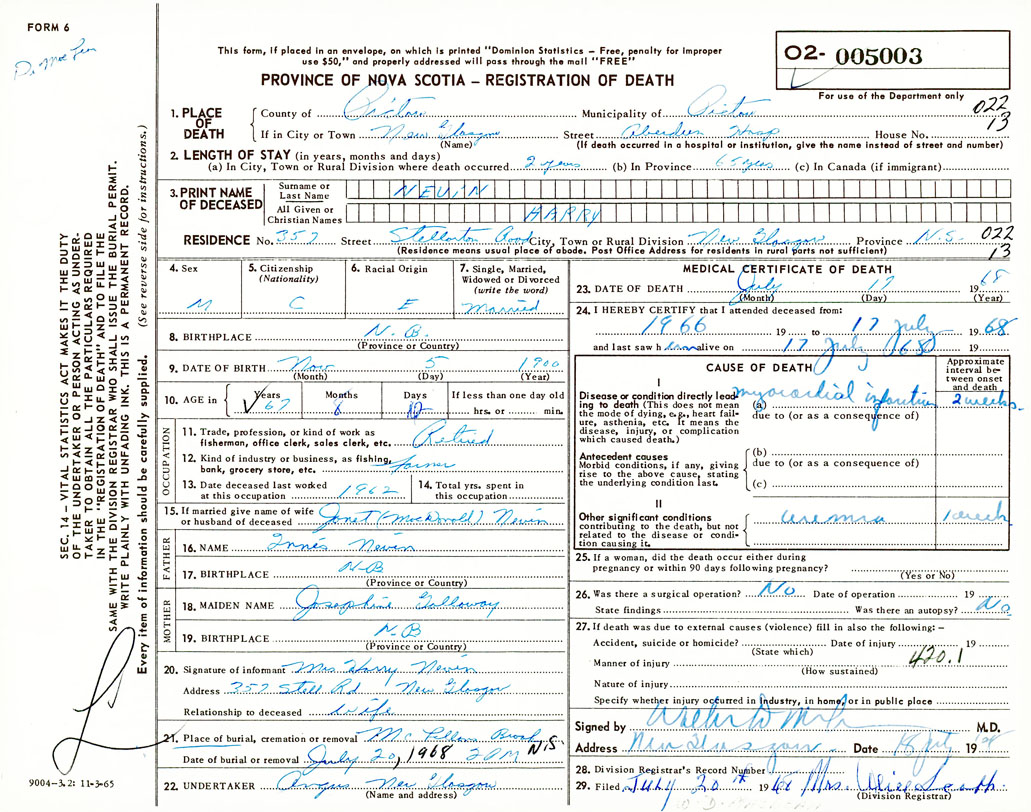 FORM 6
Dr Mac
This form, if placed in an envelope, on which is printed "Dominion Statistics – Free, penalty for improper
use $50," and properly addressed will pass through the mail "FREE"
PROVINCE OF NOVA SCOTIA – REGISTRATION OF DEATH
O2- 005003
For use of the Department only
022
13
1. PLACE OF DEATH
County of Pictou Municipality of Pictou
If in City or Town New Glasgow Street Aberdeen Hosp House No.
(Name) (If death occurred in a hospital or institution, give the name instead of street and number)
2. LENGTH OF STAY (in years, months and days)
(a) In City, Town or Rural Division where death occurred 2 years (b) In Province 65 yrs (c) In Canada (if immigrant)
3. PRINT NAME OF DECEASED
Surname or Last Name NEVIN
All Given or Christian Names HARRY
RESIDENCE No. 357 Street Stellarton Road City, Town or Rural Division New Glasgow Province N.S. 022
(Residence means usual place of abode. Post Office Address for residents in rural parts not sufficient) 13
4. Sex M
5. Citizenship (Nationality) C
6. Racial Origin E
7. Single, Married, Widowed or Divorced (write the word) Married
8. BIRTHPLACE N. B.
(Province or Country)
9. DATE OF BIRTH Nov 5 1900
(Month) (Day) (Year)
10. AGE in Years 67 Months 8 Days 12 If less than one day old
hrs. or min.
OCCUPATION
11. Trade, profession, or kind of work as
fisherman, office clerk, sales clerk, etc. Retired
12. Kind of industry or business, as fishing,
bank, grocery store, etc. farmer
13. Date deceased last worked
at this occupation 1962
14. Total yrs. spent in
this occupation
15. If married give name of wife
or husband of deceased Janet (MacDonald) Nevin
FATHER
16. NAME Innis Nevin
17. BIRTHPLACE N-B
(Province or Country)
MOTHER
18. MAIDEN NAME Josephine Galloway
19. BIRTHPLACE N-B
(Province or Country)
20. Signature of informant Mrs Harry Nevin
Address 357 Stell Rd New Glasgow
Relationship to deceased Wife
21. Place of burial, cremation or removal McLellans Brook N.S.
Date of burial or removal July 20, 1968 2 PM
22. UNDERTAKER Angus New Glasgow
(Name and address)
MEDICAL CERTIFICATE OF DEATH
23. DATE OF DEATH July 17 1968
(Month) (Day) (Year)
24. I HEREBY CERTIFY that I attended deceased from:
1966 19 to 17 July 1968
and last saw him alive on 17 July (68) 19
CAUSE OF DEATH
Approximate interval between onset and death
I
Disease or condition directly leading to death (This does not mean the mode of dying, e.g., heart failure, asthenia, etc. It means the disease, injury, or complication which caused death.)
(a) myocardial infarction 2 weeks
due to (or as a consequence of)
Antecedent causes
Morbid conditions, if any, giving rise to the above cause, stating the underlying condition last.
(b)
due to (or as a consequence of)
(c)
II
Other significant conditions contributing to the death, but not related to the disease or condition causing it.
uremia 1 week
25. If a woman, did the death occur either during
pregnancy or within 90 days following pregnancy?
(Yes or No)
26. Was there a surgical operation? No Date of operation 19
State findings Was there an autopsy? No
27. If death was due to external causes (violence) fill in also the following: –
Accident, suicide or homicide? Date of injury 19
(State which)
Manner of injury 420.1
(How sustained)
Nature of injury
Specify whether injury occurred in industry, in home, or in public place
Signed by M.D.
Address New Glasgow Date 18 19
28. Division Registrar's Record Number
29. Filed July 20th 1968 Mrs. Alice
(Division Registrar)
SEC. 14 – VITAL STATISTICS ACT MAKES IT THE DUTY
OF THE UNDERTAKER OR PERSON ACTING AS UNDER-
TAKER TO OBTAIN ALL THE PARTICULARS REQUIRED
IN THE "REGISTRATION OF DEATH" AND TO FILE THE
SAME WITH THE DIVISION REGISTRAR WHO SHALL ISSUE THE BURIAL PERMIT.
WRITE PLAINLY WITH UNFADING INK. THIS IS A PERMANENT RECORD.
Every item of information should be carefully supplied. (See reverse side for instructions.)
9004–3.2: 11-3-65